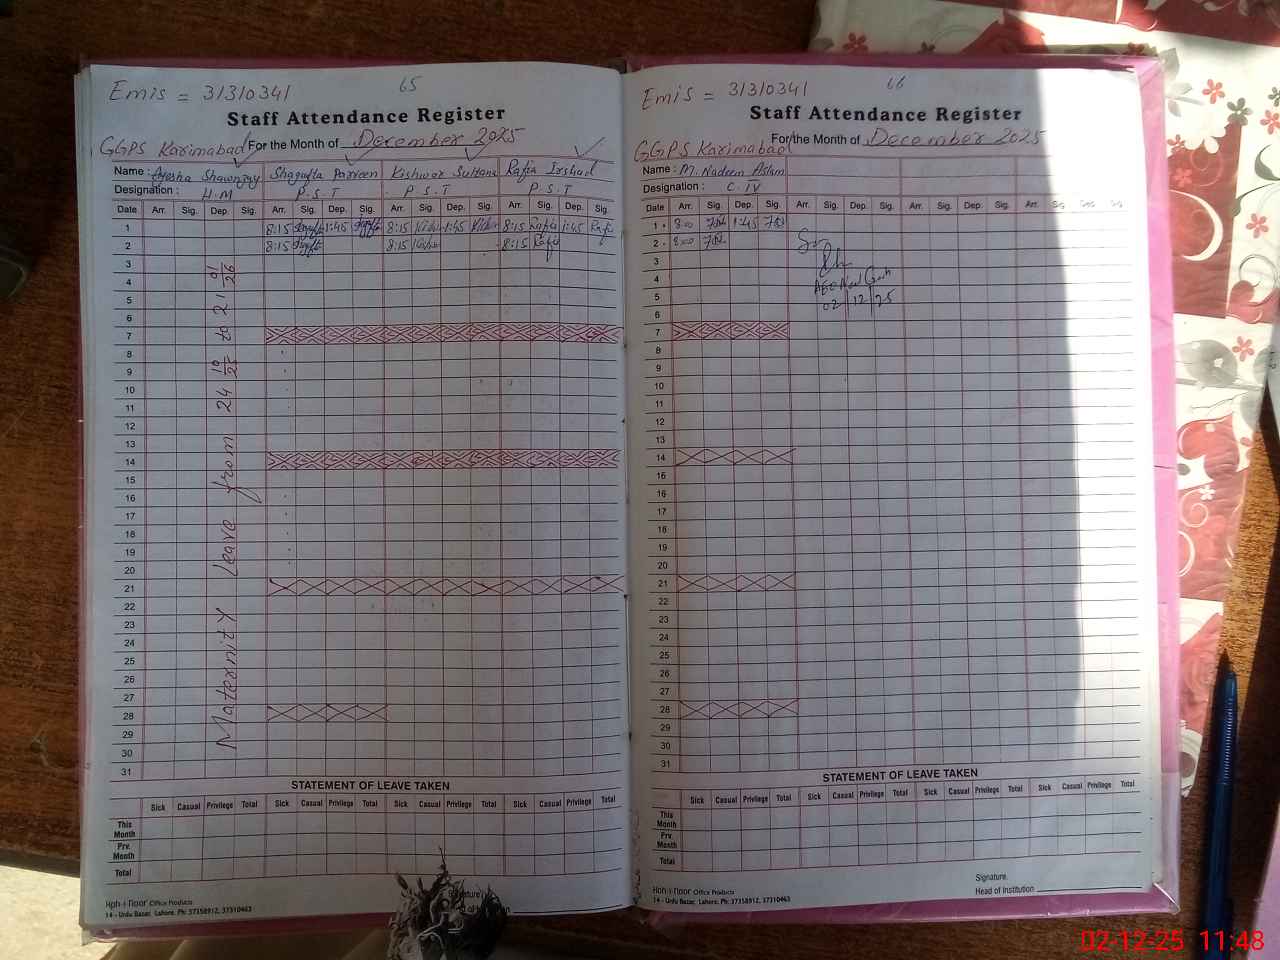 Emis = 31310341
65
Staff Attendance Register
GGPS Karimabad For the Month of December 2025
Name : Ayesha Shawnzay Shagufta Parveen Kishwar Sultana Rafia Irshad
Designation : H.M P.S.T P.S.T P.S.T
Date Arr. Sig. Dep. Sig. Arr. Sig. Dep. Sig. Arr. Sig. Dep. Sig. Arr. Sig. Dep. Sig.
1 8:15 1:45 8:15 1:45 8:15 Rafia 1:45 Rafia
2 8:15 8:15 8:15 Rafia
3
4
5
6
7
8
9
10
11
12
13
14
15
16
17
18
19
20
21
22
23
24
25
26
27
28
29
30
31
Maternity Leave from 24 10/25 to 21 01/26
STATEMENT OF LEAVE TAKEN
Sick Casual Privilege Total Sick Casual Privilege Total Sick Casual Privilege Total Sick Casual Privilege Total
This Month
Prv. Month
Total
Signature
Hoh-i-Noor Office Products
14 - Urdu Bazar, Lahore. Ph: 37358912, 37310463
Emis = 31310341
66
Staff Attendance Register
GGPS Karimabad For the Month of December 2025
Name : M. Nadeem Aslam
Designation : C. IV
Date Arr. Sig. Dep. Sig. Arr. Sig. Dep. Sig. Arr. Sig. Dep. Sig. Arr. Sig. Dep. Sig.
1 8:00 1:45
2 8:00
3
4
5
6
7
8
9
10
11
12
13
14
15
16
17
18
19
20
21
22
23
24
25
26
27
28
29
30
31
AEO
02 12 25
STATEMENT OF LEAVE TAKEN
Sick Casual Privilege Total Sick Casual Privilege Total Sick Casual Privilege Total Sick Casual Privilege Total
This Month
Prv. Month
Total
Signature.
Head of Institution
Hoh-i-Noor Office Products
14 - Urdu Bazar, Lahore. Ph: 37358912, 37310463
02-12-25 11:48